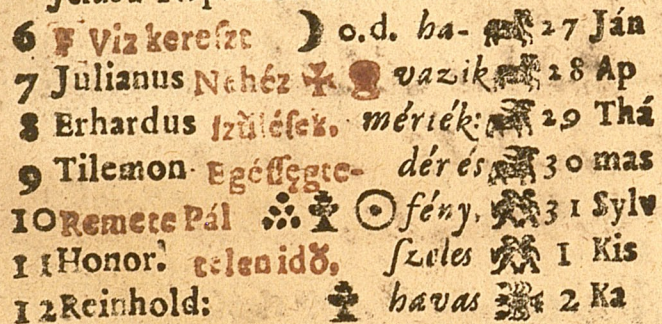 6 F Viz kereſzt ☽ o.d. ha- 27 Ján
7 Julianus Nehéz ✠ vazik 28 Ap
8 Erhardus ſzűléſek. mérték: 29 Thá
9 Tilemon Egéſſęgte- dér és 30 mas
10 Remete Pál ☉ fény. 31 Sylv
11 Honor. telen idő. ſzeles 1 Kis
12 Reinhold: havas 2 Ka